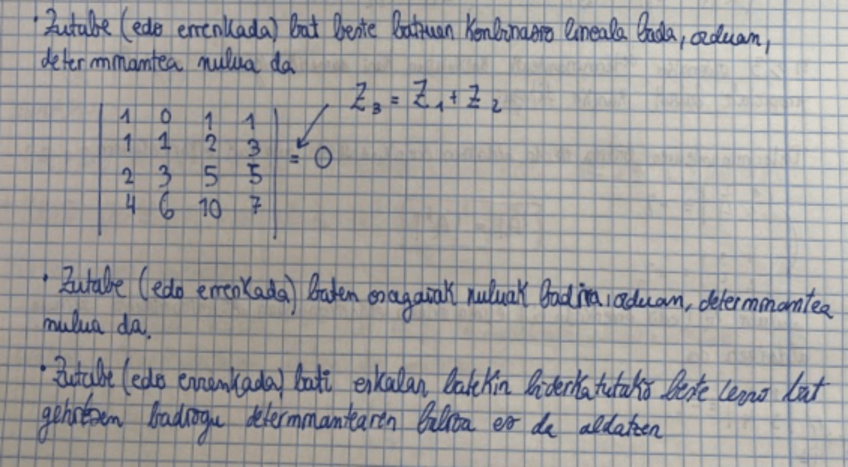 · Zutabe (edo errenkada) bat beste batzuen konbinazio lineala bada, orduan,
determinantea nulua da
Z₃ = Z₁ + Z₂
1 0 1 1
1 1 2 3 = 0
2 3 5 5
4 6 10 7
· Zutabe (edo errenkada) baten osagaiak nuluak badira, orduan, determinantea
nulua da.
· Zutabe (edo errenkada) bati eskalar batekin biderkatutako beste lerro bat
gehitzen badiogu determinantearen balioa ez da aldatzen